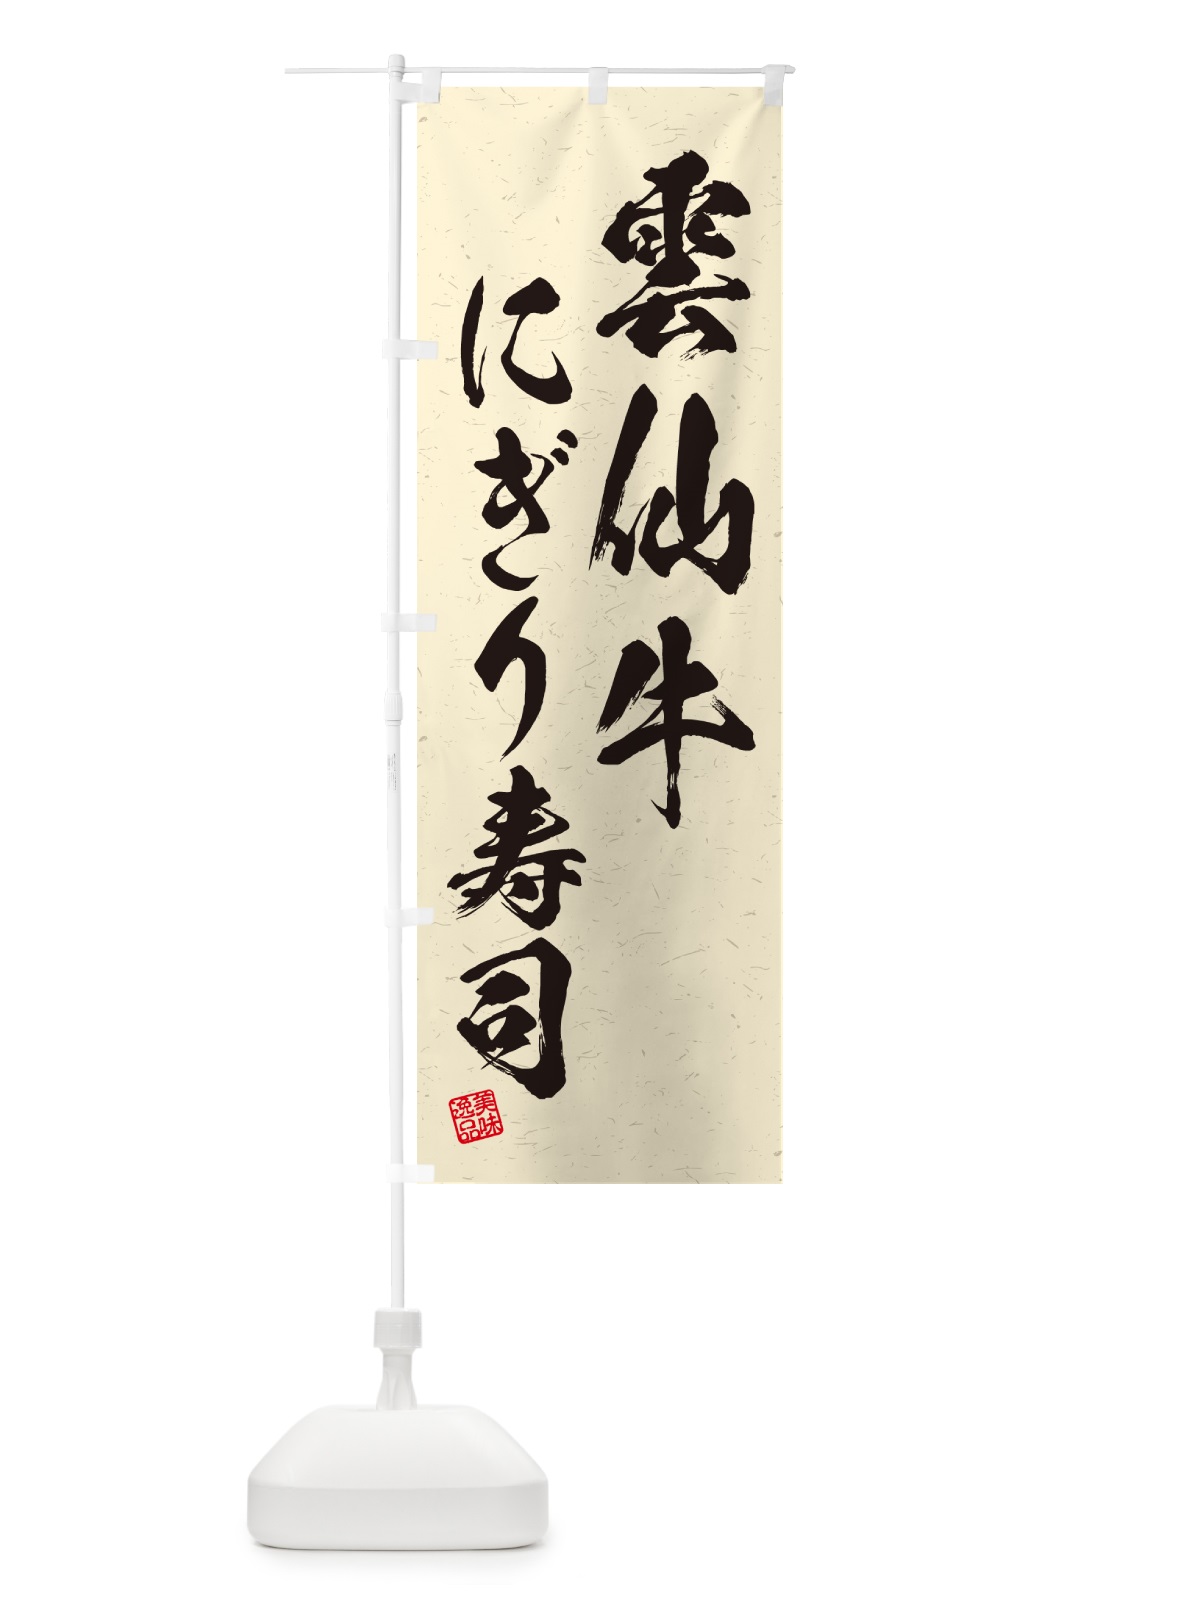 雲仙牛
にぎり寿司
美味
逸品